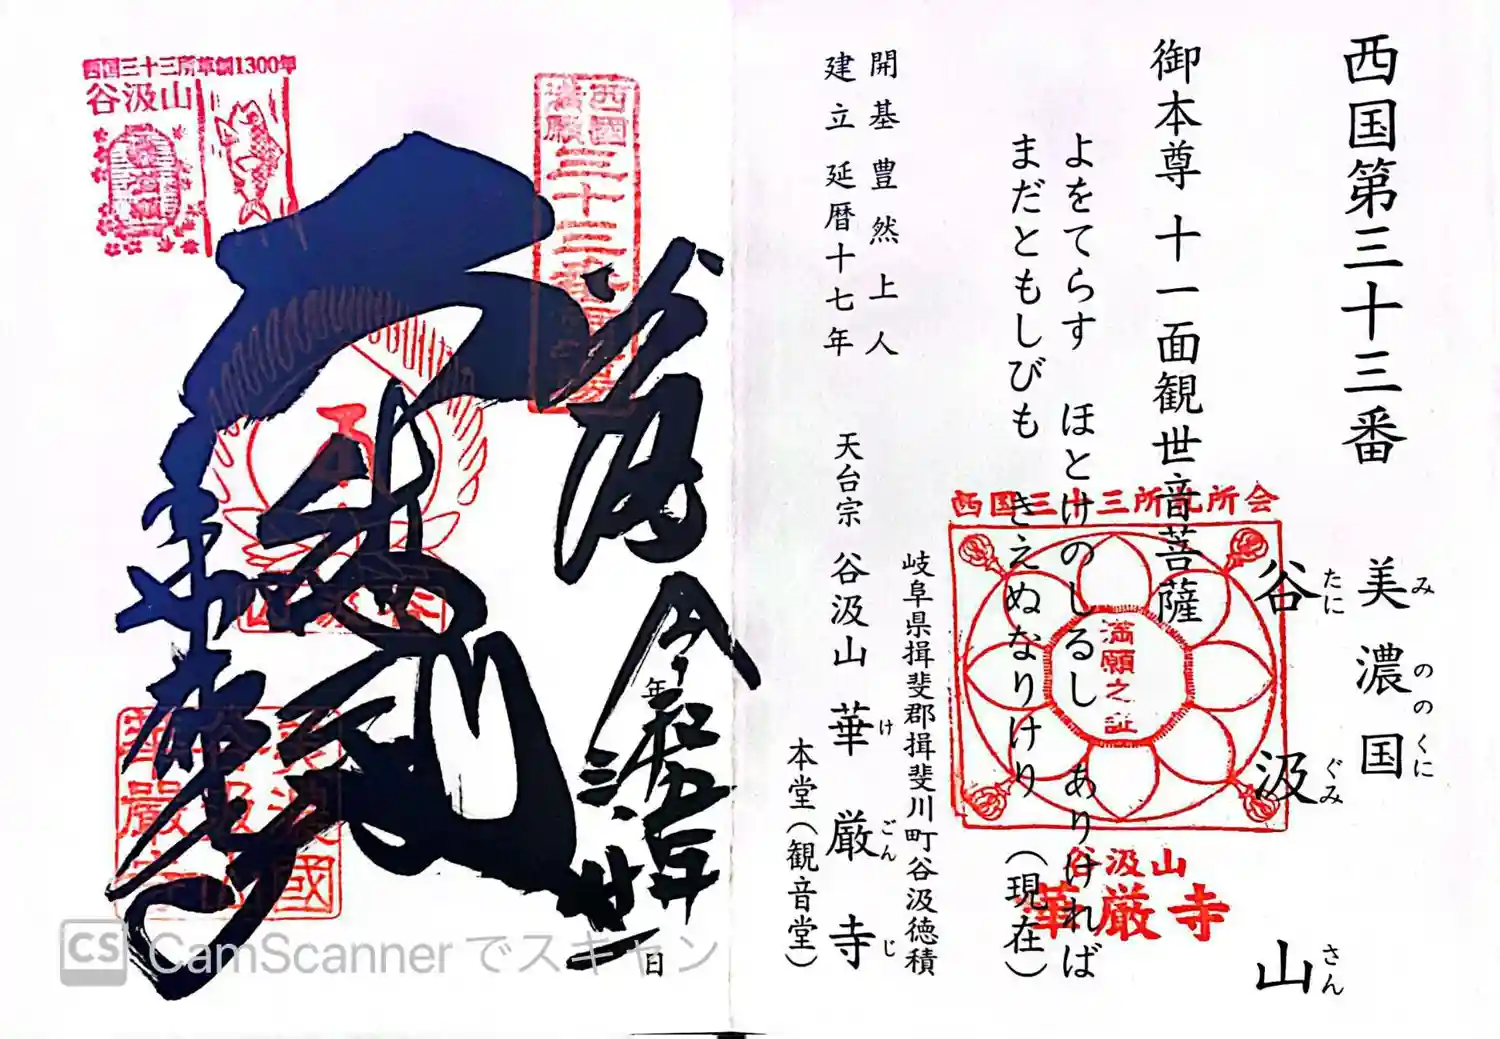 西国第三十三番
美濃国
みののくに
谷汲山
たにぐみさん
御本尊 十一面観世音菩薩
よをてらす ほとけのしるし ありければ
まだともしびも きえぬなりけり (現在)
開基 豊然上人
建立 延暦十七年
岐阜県揖斐郡揖斐川町谷汲徳積
天台宗 谷汲山 華厳寺
けごんじ
本堂(観音堂)
西国三十三所札所会
満願之証
谷汲山
華厳寺
西国三十三所草創1300年
谷汲山
西國
満願
三十三番
奉拝
令和五年
年
三
廿一
日
華嚴寺
CS CamScannerでスキャン